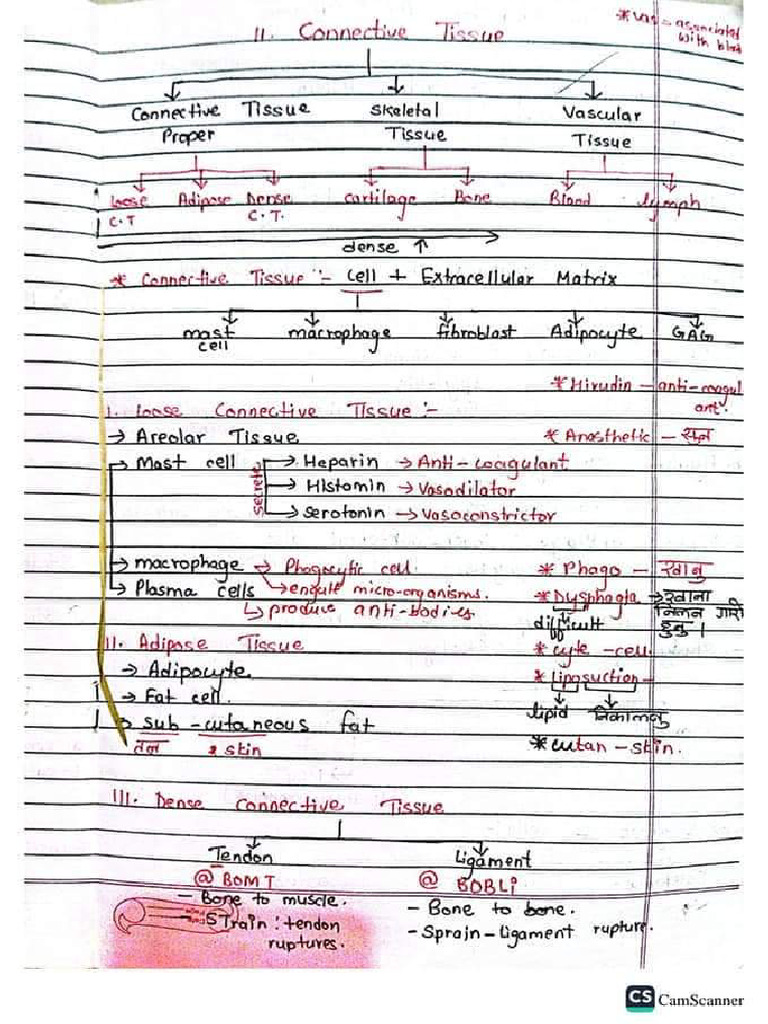 II. Connective Tissue
* Vas - associated with blood
Connective Tissue Proper
Skeletal Tissue
Vascular Tissue
Loose C.T
Adipose
Dense C.T.
Cartilage
Bone
Blood
Lymph
dense ↑
* Connective Tissue :- Cell + Extracellular Matrix
mast cell
macrophage
fibroblast
Adipocyte
GAG
* Hirudin - anti-coagulant.
I. Loose Connective Tissue :-
→ Areolar Tissue
* Anasthetic -
→ Mast cell
secrete
→ Heparin → Anti-coagulant
→ Histomin → Vasodilator
→ Serotonin → Vasoconstrictor
→ macrophage → Phagocytic cell.
→ engulf micro-organisms.
* Phago - खानु
→ Plasma cells
→ produce anti-bodies.
* Dysphagia → खाना निल्न गारो हुनु।
difficult
II. Adipose Tissue
* cyte - cell.
→ Adipocyte
* Liposuction -
→ Fat cell.
lipid निकाल्नु
→ Sub-cutaneous fat
तल skin
* cutan - skin.
III. Dense Connective Tissue
Tendon
@ BOMT
- Bone to muscle.
- STrain : tendon ruptures.
Ligament
@ BOBLi
- Bone to bone.
- Sprain - Ligament rupture.
CS CamScanner